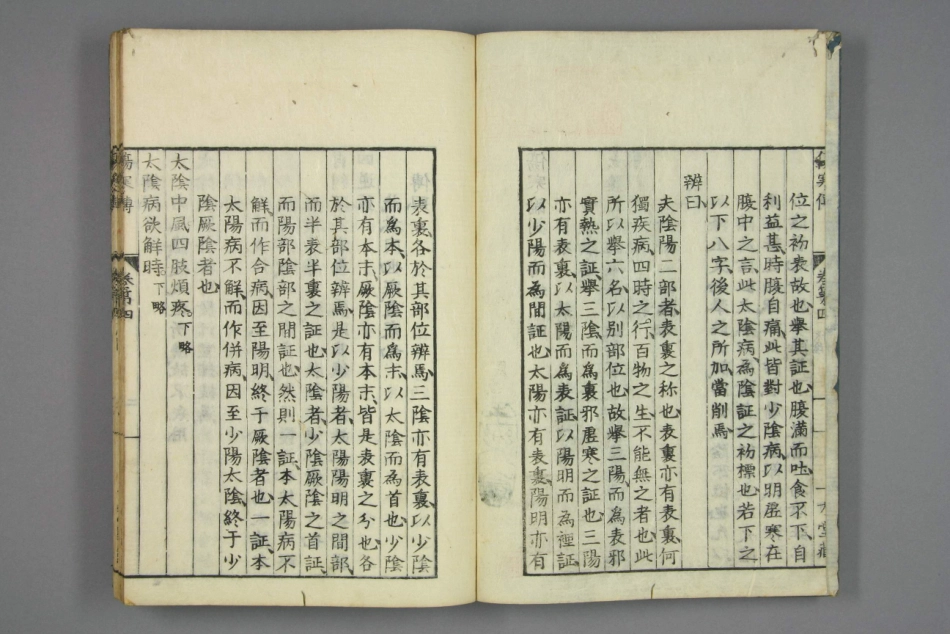 位之初表故也擧其証也腹滿而吐食不下自
利益甚時腹自痛此皆對少陰病以明虛寒在
腹中之言此太陰病為陰証之初標也若下之
以下八字後人之所加當削焉
辨曰
夫陰陽二部者表裏之称也表裏亦有表裏何
獨疾病四時之行百物之生不能無之者也此
所以擧六名以别部位也故擧三陽而為表邪
實熱之証擧三陰而為裏邪虛寒之証也三陽
亦有表裏以太陽而為表証以陽明而為裡証
以少陽而為間証也太陽亦有表裏陽明亦有
表裏各於其部位辨焉三陰亦有表裏以少陰
而為本以厥陰而為末以太陰而為首也少陰
亦有本末厥陰亦有本末皆是表裏之分也各
於其部位辨焉是以少陽者太陽陽明之間部
而半表半裏之証也太陰者少陰厥陰之首証
而陽部陰部之間証也然則一証本太陽病不
觧而作合病因至陽明終于厥陰者也一証本
太陽病不觧而作併病因至少陽太陰終于少
陰厥陰者也
太陰中風四肢煩疼下略
太陰病欲觧時下略